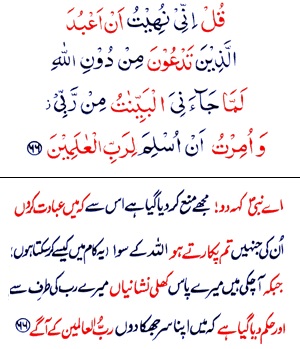 قُلْ اِنِّیْ نُهِیْتُ اَنْ اَعْبُدَ
الَّذِیْنَ تَدْعُوْنَ مِنْ دُوْنِ اللّٰهِ
لَمَّا جَآءَنِیَ الْبَیِّنٰتُ مِنْ رَّبِّیْ
وَاُمِرْتُ اَنْ اُسْلِمَ لِرَبِّ الْعٰلَمِیْنَ ﴿۶۶﴾
اے نبیؐ کہہ دو! مجھے منع کر دیا گیا ہے اس سے کہ میں عبادت کروں
اُن کی جنہیں تم پکارتے ہو اللہ کے سوا (یہ کام میں کیسے کر سکتا ہوں)
جبکہ آ چکی ہیں میرے پاس کھلی نشانیاں میرے رب کی طرف سے
اور حکم دیا گیا ہے کہ میں اپنا سر جھکا دوں ربُّ العالمین کے آگے ﴿۶۶﴾